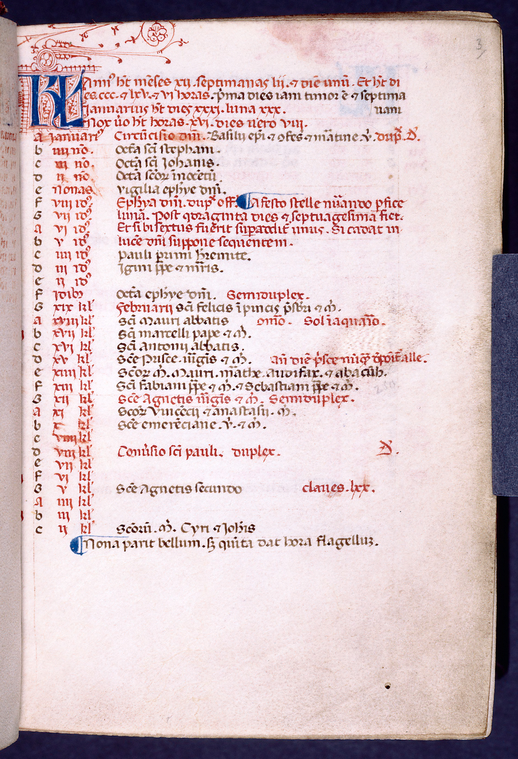 3
KL Annus ht menses xij. septimanas lij. & diem unum. Et ht di
es.cccc. & lxv. & vi horas. prima dies iani timor e & septima
Ianuarius ht dies xxxi. luna xxx. uani
Nox uo ht horas. xvi. dies uero viii.
a Januari' Circucisio dni. Basilii epi & ofes & matine v. dup. D.
b iiii no. Octa sci stephani.
c iii no. Octa sci Johanis.
d ii no. Octa scor inocetu.
e nonas Vigilia ephye dni.
f viii id' Ephya dni. dup. off. A festo stelle nuando pfice
G vii id' luna. Post qdraginta dies & septuagesima fiet.
a vi id' Et si bisextus fuerit supadded unus. Si cadat in
b v id' luce dni suppone sequentem.
c iiii id' Pauli primi hremite.
d iii id' Igini ppe & mris.
e ii id'
f idib' Octa ephye dni. Semiduplex.
G xix kl Februarii Sci felicis i pincis psbri & m.
a xviii kl Sci Mauri abbatis Sol i aquario.
b xvii kl Sci marcelli pape & m.
c xvi kl Sci antonii abbatis.
d xv kl Sce Prisce uigis & m.
e xiiii kl Scor m. Mauri. mathe. audifax. & abacuh.
f xiii kl Sci fabiani ppe & m. & Sebastiani ppe & m.
G xii kl Sce Agnetis uigis & m. Semiduplex.
a xi kl Scor Vincecii & anastasii. m.
b x kl Sce emereciane. v. & m.
c viiii kl
d viii kl Conuersio sci pauli. duplex. D.
e vii kl
f vi kl
G v kl Sce Agnetis secundo claues. lxx.
a iiii kl
b iii kl
c ii kl Scorum. m. Cyri & Johis
Nona parit bellum. sz quinta dat hora flagellum.